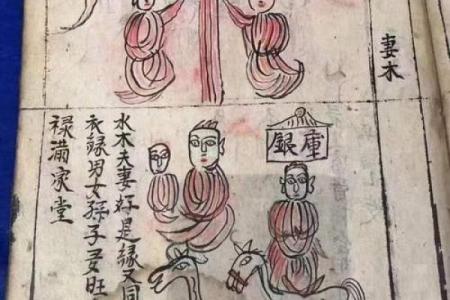 妻木
銀庫
水木夫妻好是緣又同
衣祿男女孫子多旺
禄滿家堂